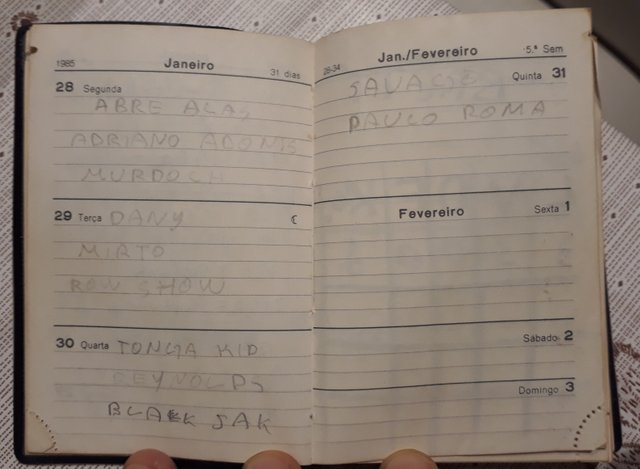 1985 Janeiro 31 dias
28 Segunda
ABRE ALAS
ADRIANO ADONIS
MURDOCH
29 Terça DANY
MIRTO
ROW SHOW
30 Quarta TONGA KID
REYNOLDS
BLAEK JAK
28-34 Jan./Fevereiro 5.ª Sem
SAVAGE Quinta 31
PAULO ROMA
Fevereiro Sexta 1
Sábado 2
Domingo 3